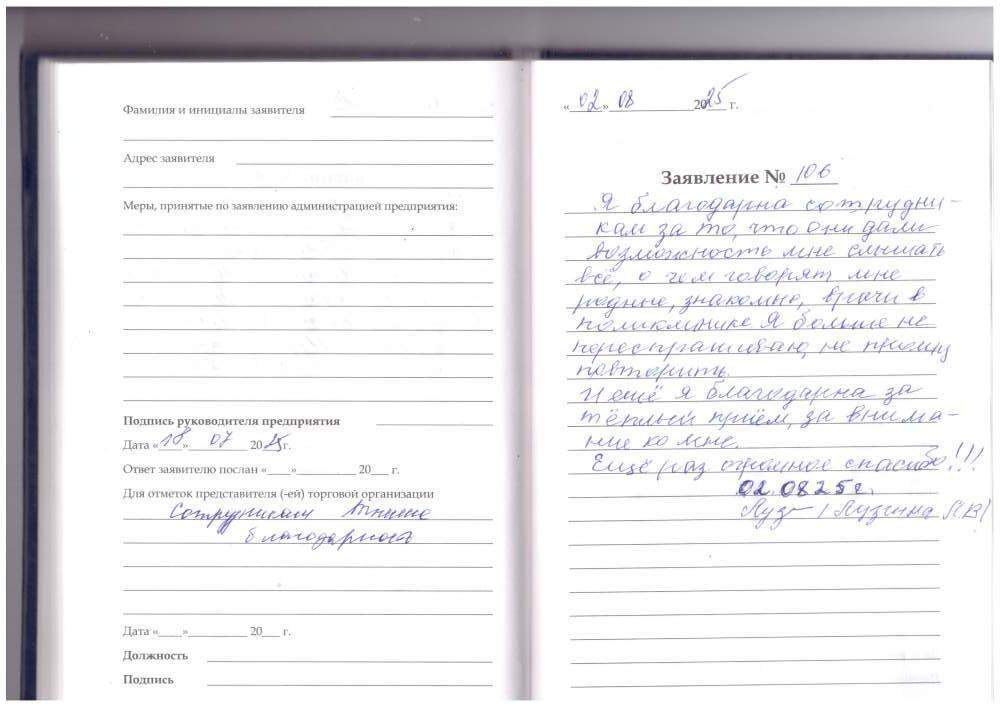 Фамилия и инициалы заявителя
Адрес заявителя
Меры, принятые по заявлению администрацией предприятия:
Подпись руководителя предприятия
Дата «18» 07 2025г.
Ответ заявителю послан «___»__________ 20___ г.
Для отметок представителя (-ей) торговой организации
Сотрудникам
благодарность
Дата «____»__________ 20___ г.
Должность
Подпись
«02» 08 2025 г.
Заявление № 106
Я благодарна сотрудни-
кам за то, что они дали
возможность мне слышать
всё, о чем говорят мне
родные, знакомые, врачи в
поликлинике Я больше не
переспрашиваю, не прошу
повторить.
И ещё я благодарна за
тёплый приём, за внима-
ние ко мне.
Ещё раз огромное спасибо!!!
02.08 25г.
Луз / Лузгина Л.В/